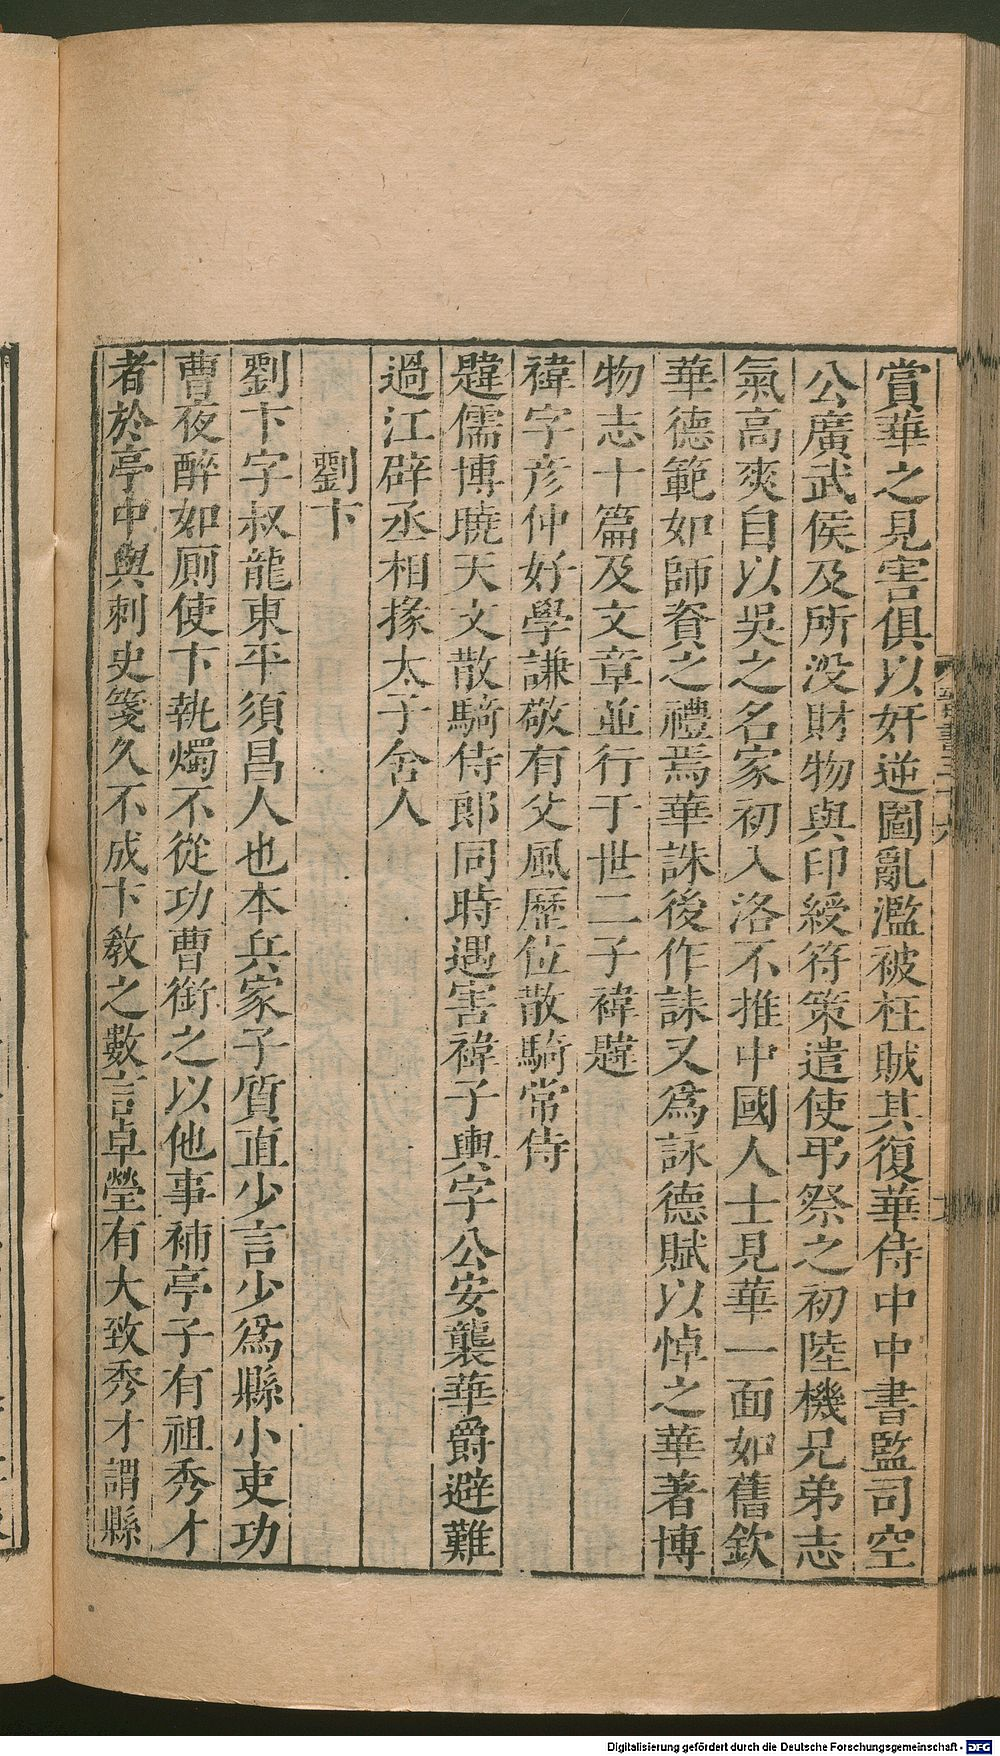 賞華之見害俱以奸逆圖亂濫被枉賊其復華侍中中書監司空
公廣武侯及所沒財物與印綬符策遣使弔祭之初陸機兄弟志
氣高爽自以吳之名家初入洛不推中國人士見華一面如舊欽
華德範如師資之禮焉華誅後作誄又爲詠德賦以悼之華著博
物志十篇及文章並行于世二子褘韙
褘字彦仲好學謙敬有父風歷位散騎常侍
韙儒博曉天文散騎侍郎同時遇害褘子輿字公安襲華爵避難
過江辟丞相掾太子舍人
劉卞
劉卞字叔龍東平須昌人也本兵家子質直少言少爲縣小吏功
曹夜醉如厠使卞執燭不從功曹銜之以他事補亭子有祖秀才
者於亭中與刺史箋久不成卞教之數言卓犖有大致秀才謂縣
晉書三十六
Digitalisierung gefördert durch die Deutsche Forschungsgemeinschaft - DFG